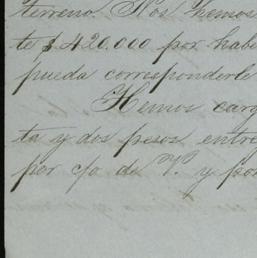 terreno. Nos hemos
te $ 420.000 por habe
pueda corresponderle
Hemos carg
ta y dos pesos entre
por c/o de V. y por